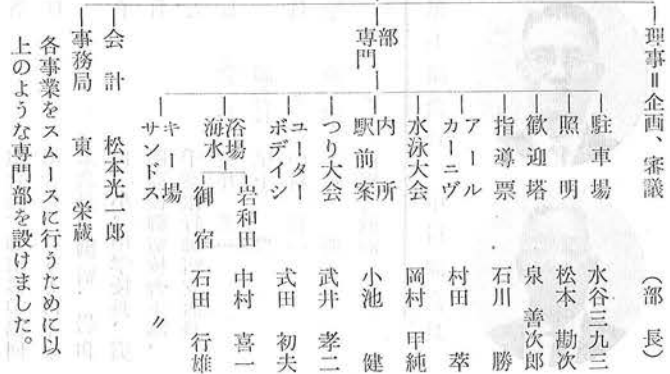 理事＝企画、審議
（部長）
専門部
駐車場 水谷三九三
照明 松本勘次
歓迎塔 泉善次郎
指導票 石川勝
アールカーニヴ 村田萃
水泳大会 岡村甲純
駅前案内所 小池健
つり大会 武井孝二
ユーターボデイシ 式田初夫
海水浴場
岩和田 中村喜一
御宿 石田行雄
サンドスキー場 〃
会計 松本光一郎
事務局 東栄蔵
各事業をスムースに行うために以
上のような専門部を設けました。